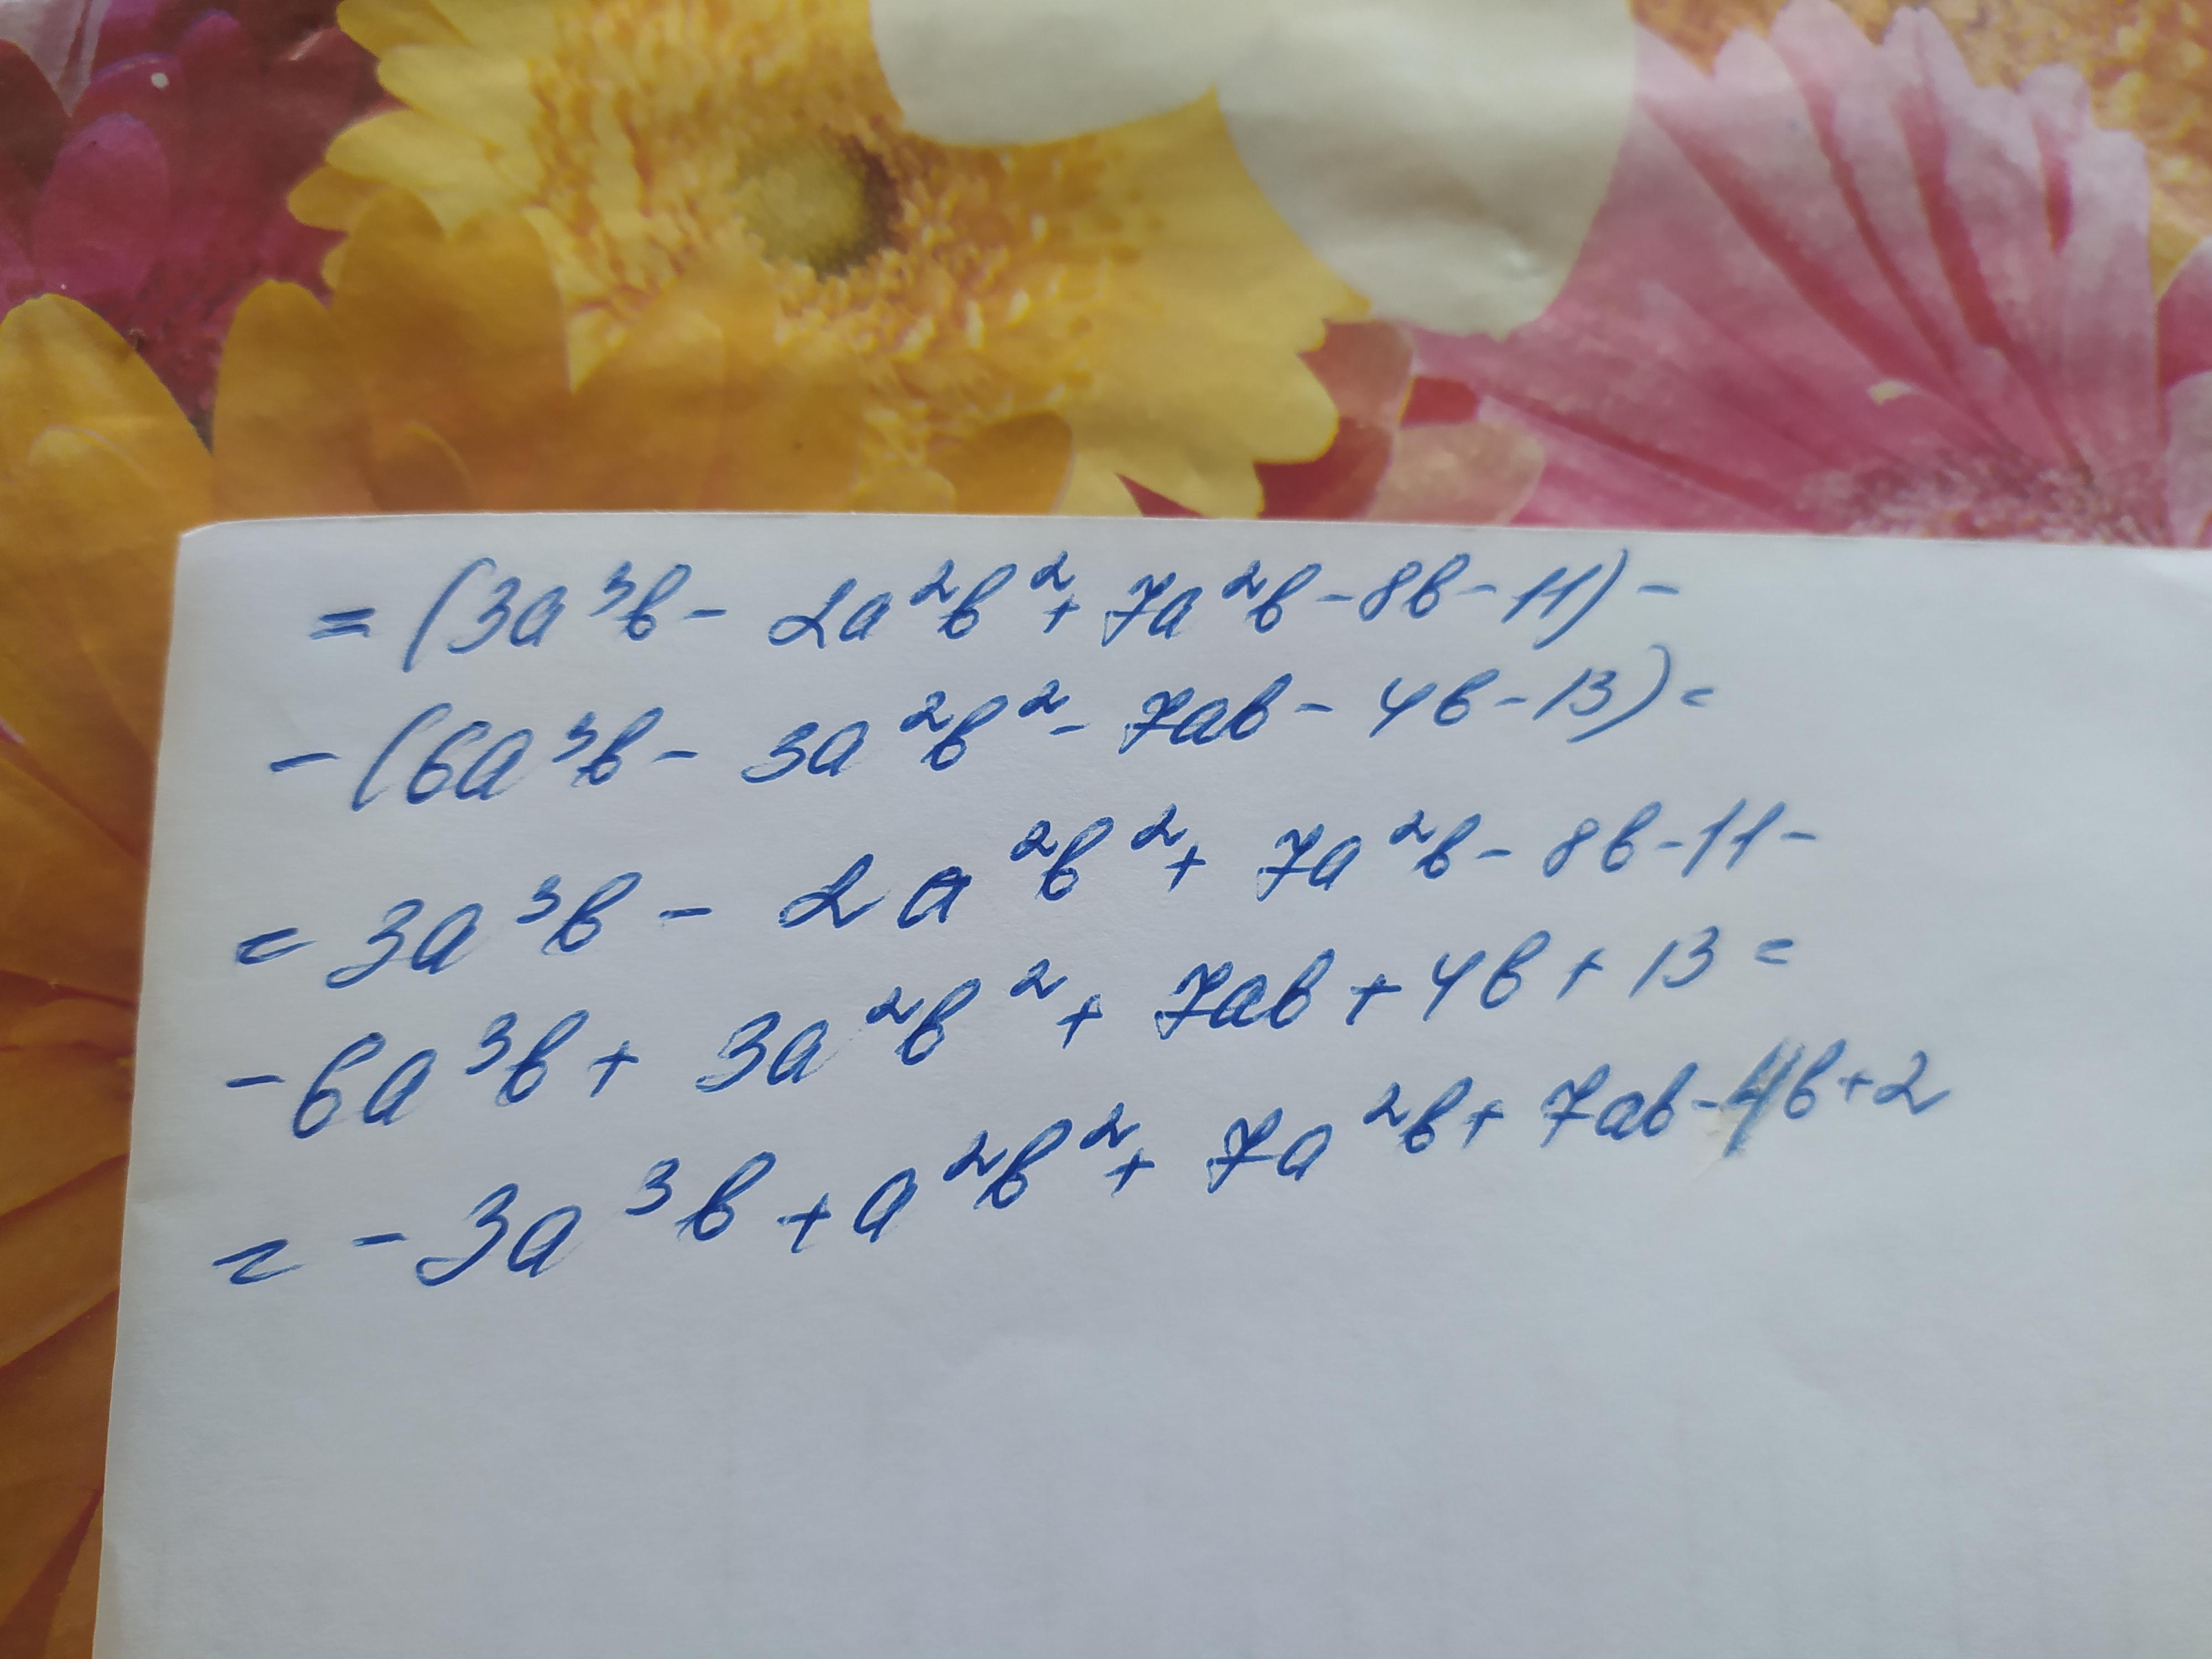 = (3a³b - 2a²b² + 7a²b - 8b - 11) -
- (6a³b - 3a²b² - 7ab - 4b - 13) =
= 3a³b - 2a²b² + 7a²b - 8b - 11 -
- 6a³b + 3a²b² + 7ab + 4b + 13 =
= - 3a³b + a²b² + 7a²b + 7ab - 4b + 2